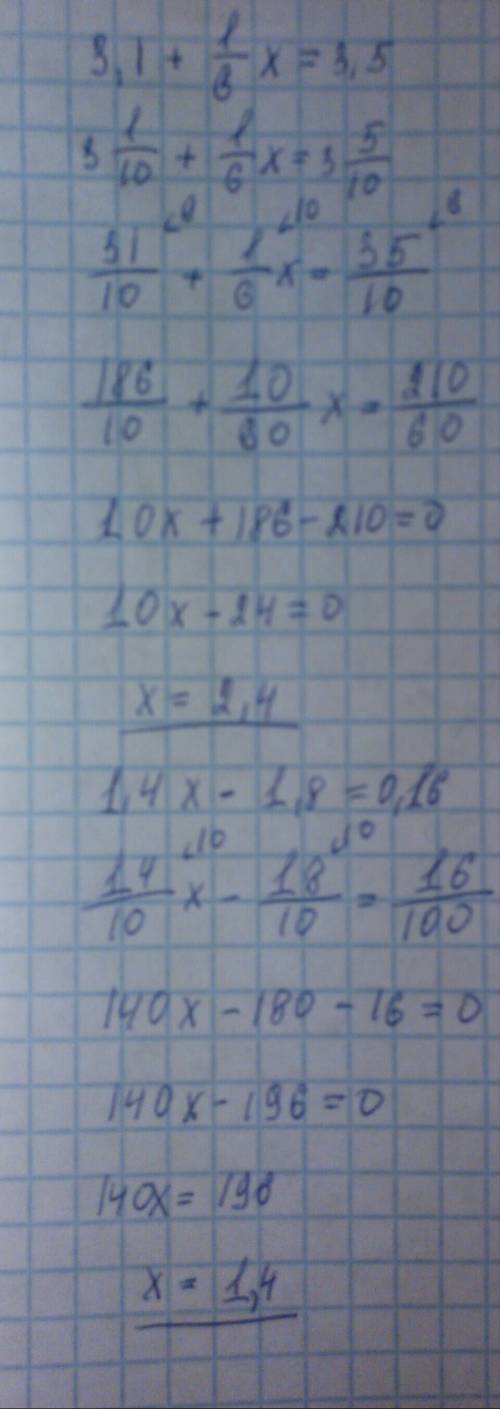 3,1 + 1/6 x = 3,5
3 1/10 + 1/6 x = 3 5/10
31/10 ⌞6 + 1/6 ⌞10 x = 35/10 ⌞6
186/10 + 10/60 x = 210/60
10x + 186 - 210 = 0
10x - 24 = 0
x = 2,4
1,4x - 1,8 = 0,16
14/10 ⌞10 x - 18/10 ⌞10 = 16/100
140x - 180 - 16 = 0
140x - 196 = 0
140x = 196
x = 1,4